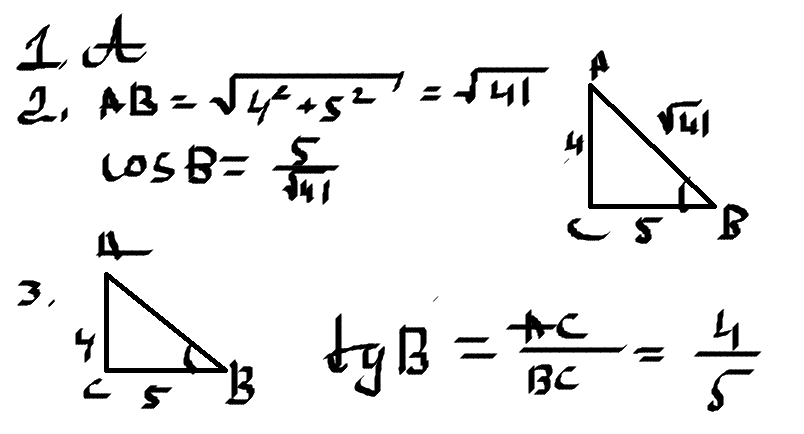 1. A
2. AB = √(4² + 5²) = √41
cos B = 5/√41
A
4
√41
C 5 B
A
3.
4
C 5 B
tg B = AC/BC = 4/5